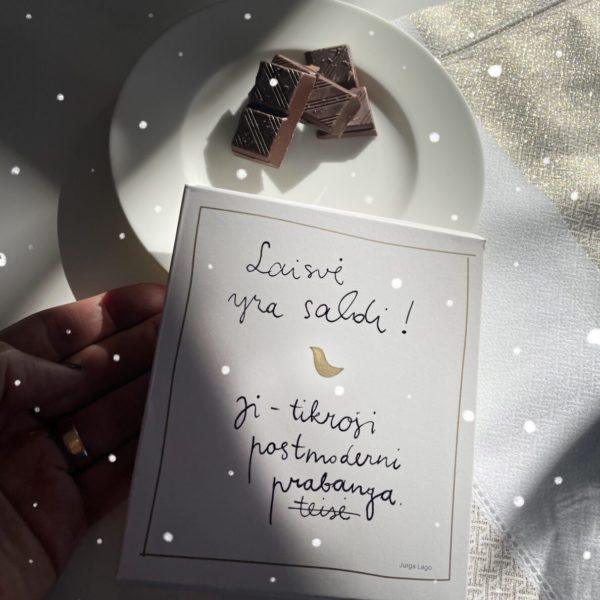 Laisvė
yra saldi!
Ji - tikroji
postmoderni
prabanga.
teisė
Jurga Lago